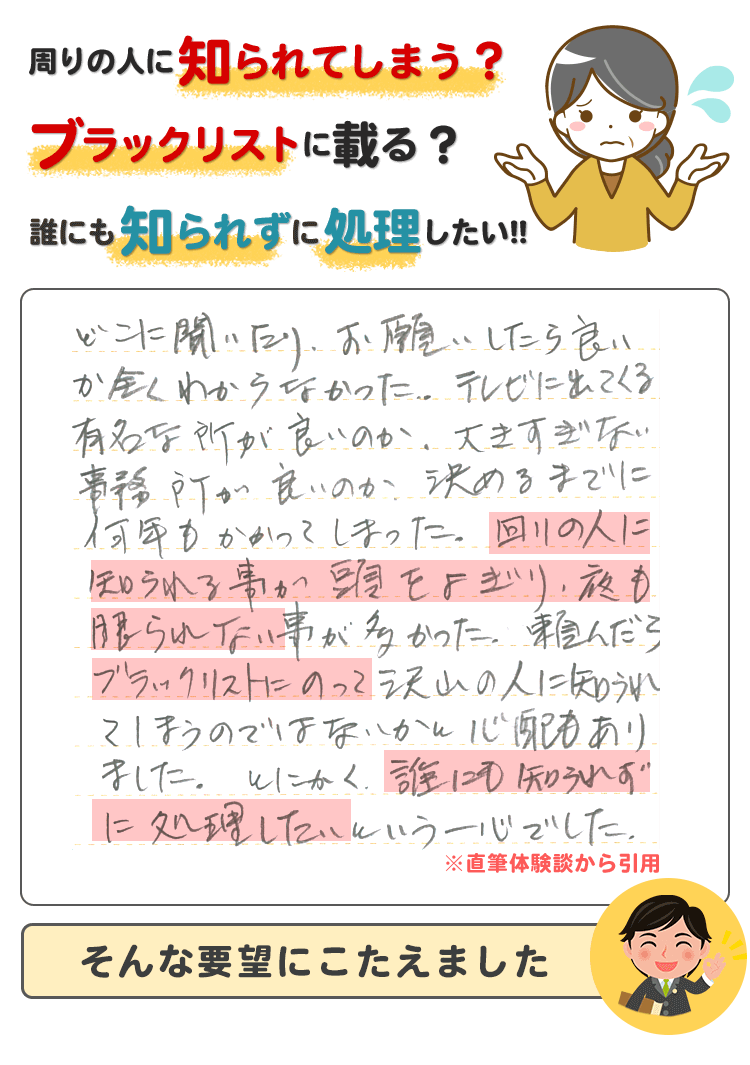 周りの人に知られてしまう？
ブラックリストに載る？
誰にも知られずに処理したい!!
どこに聞いたり、お願いしたら良い
か全くわからなかった。テレビに出てくる
有名な所が良いのか、大きすぎない
事務所が良いのか、決めるまでに
何年もかかってしまった。回りの人に
知られる事が頭をよぎり、夜も
眠られない事が多かった。頼んだら
ブラックリストにのって沢山の人に知られ
てしまうのではないかと心配もあり
ました。とにかく、誰にも知られず
に処理したいという一心でした。
※直筆体験談から引用
そんな要望にこたえました